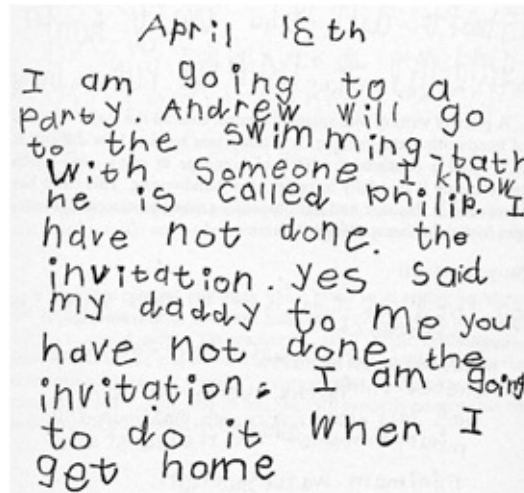 April 18th
I am going to a
party. Andrew will go
to the swimming-bath
with someone I know
he is called philip. I
have not done. the
invitation. yes said
my daddy to me you
have not done the
invitation. I am going
to do it when I
get home